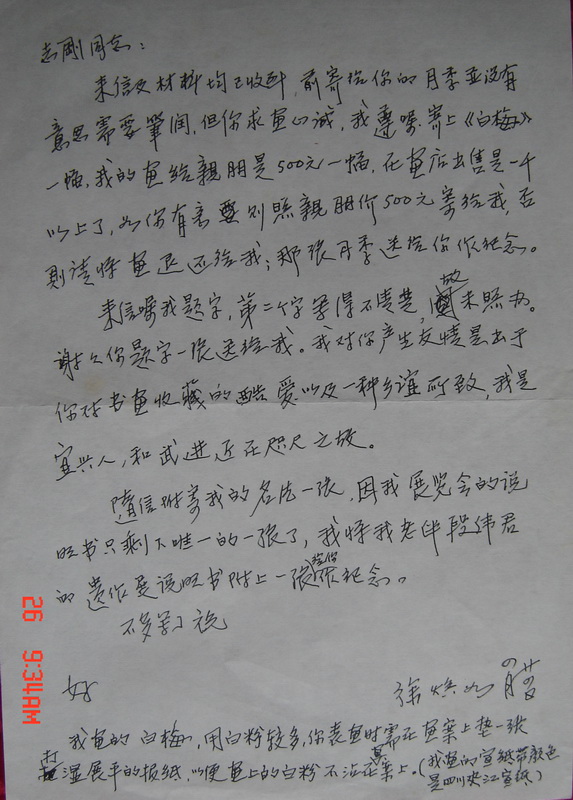 志刚同志：
来信及材料均已收到，前寄给你的月季并没有
意思需要筆润，但你求画心诚，我遵嘱寄上《白梅》
一幅，我的画给親朋是500元一幅，在画店出售是一千
以上了，如你有需要则照親朋价500元寄给我，否
则请将画退还给我；那张月季送给你作纪念。
来信嘱我题字，第二个字写得不清楚，故未照办。
谢谢你题字一张送给我。我对你产生友情是出于
你对书画收藏的酷爱以及一种乡谊所致，我是
宜兴人，和武进近在咫尺之故。
随信附寄我的名片一张，因我展览会的说
明书只剩下唯一的一张了，我将我老伴段伟君
的遗作展说明书附上一张给你作纪念。
不多写了祝
好
徐焕
月
我画的白梅，用白粉较多，你裱画时需在画案上垫一张
打湿展平的报纸，以便画上的白粉不沾在案上。(我画的宣纸带颜色
是四川夹江宣纸)
26 9:34AM